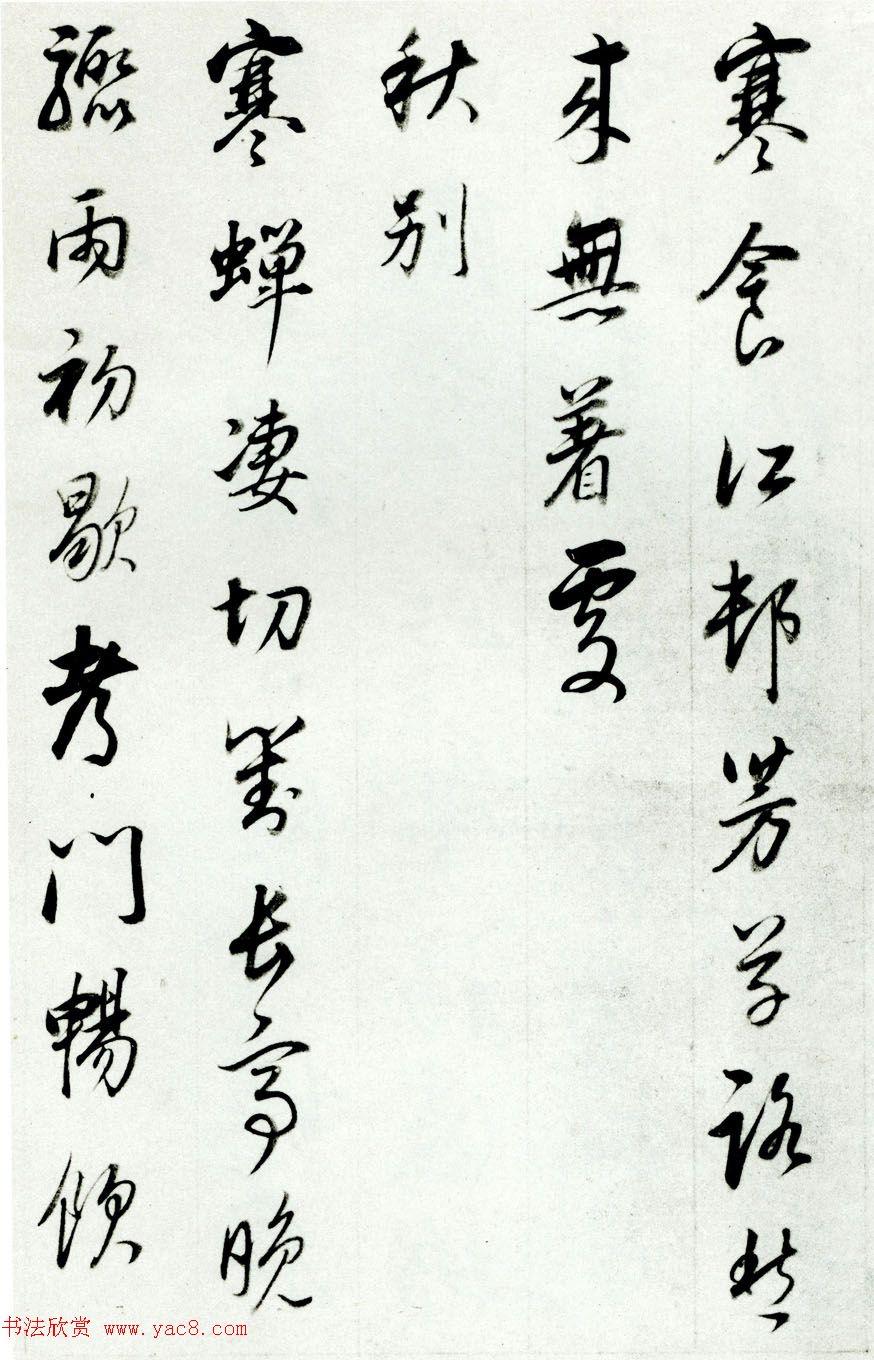 寒食江邨芳草路愁
来無著處
秋别
寒蟬凄切對长亭晚
驟雨初歇考門暢飲
书法欣赏 www.yac8.com